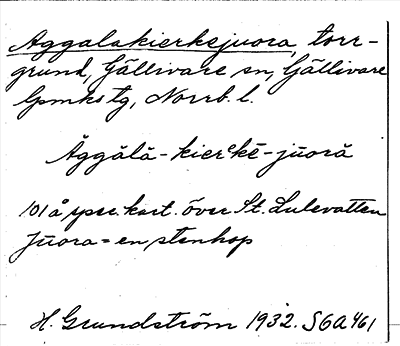 Aggalakierkejuora, torr-
grund, Gällivare sn, Gällivare
lpmks tg, Norrb. l.
Āggălă-kierᵉkē-jūoră
101 å spec. kart. över St. Lulevatten
Jūora = en stenhop
H. Grundström 1932. S6A461